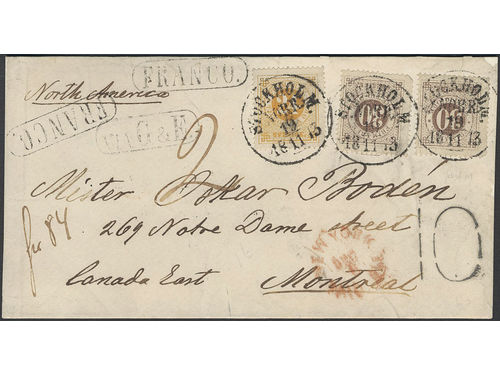 FRANCO.
North America
FRANCO.
STOCKHOLM
19
18 11 73
STOCKHOLM
19
18 11 73
STOCKHOLM
19
18 11 73
30
2
Mister Oskar Bodén
fr 84
269 Notre Dame street
10
NEW YORK
Canada East
Montreal